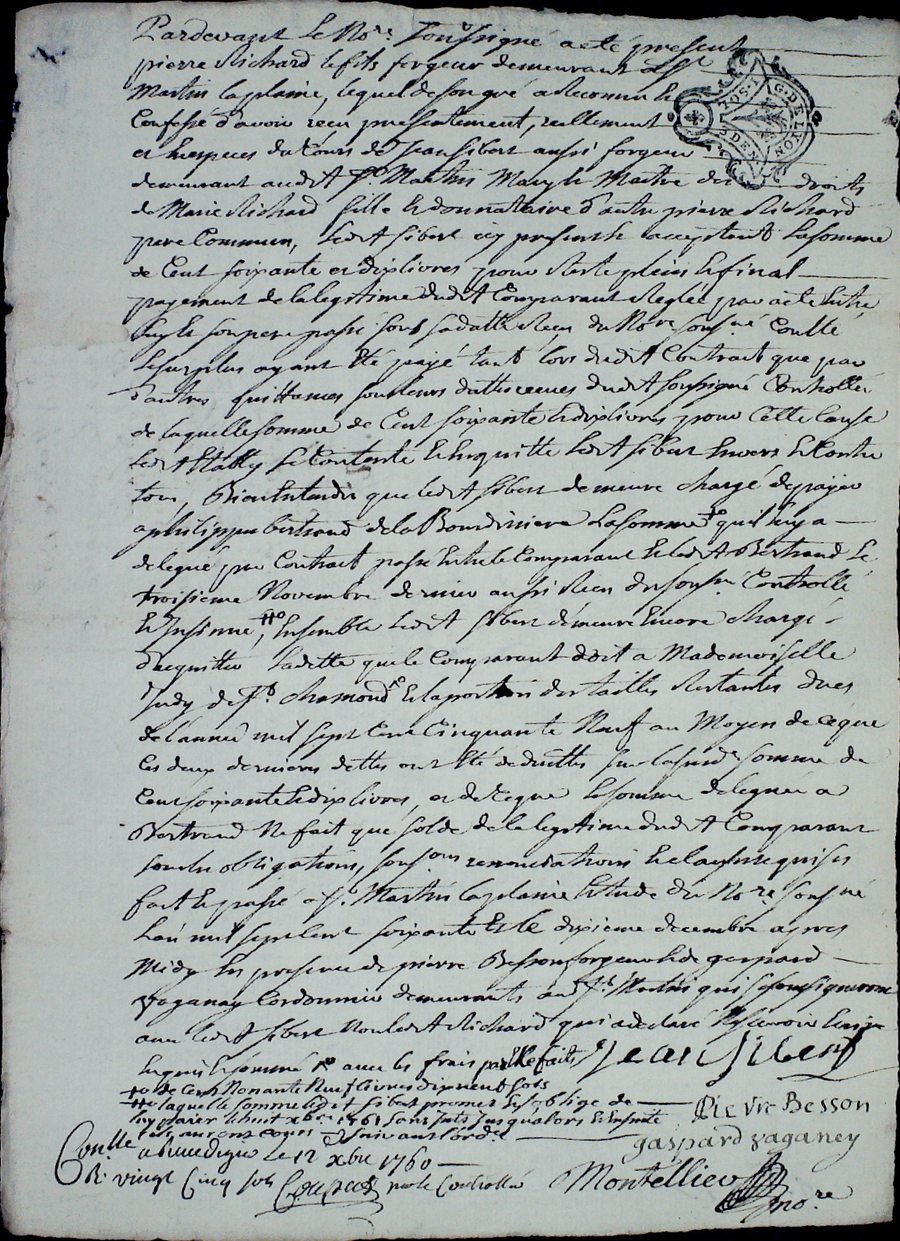 Pardevant le No.re Soussigné a eté present
pierre Richard le fils forgeur demeurant a St
Martin la plaine, lequel de son gré a Reconnu et
Confessé d'avoir receu presentement, reellement
et en especes du Cours de Jean Sibert aussi forgeur
demeurant audit St. Martin Mary et Maitre des droits
de Marie Richard fille et donnataire d'autre pierre Richard
pere Commun, ledit Sibert icy present et acceptant la somme
de Cent soixante et dix livres pour Reste plein et final
payement de la legitime dudit Comparant Reglée par acte entre
luy et son pere passé sous sa datte Receu du No.re sousné Conllé
le surplus ayant eté payé tant lors dudit Contract que par
d'autres quittances sous leurs dattes receues dudit soussigné Controllées
de laquelle somme de Cent soixante et dix livres pour Cette Cause
ledit se Contente et en quitte ledit Sibert envers et Contre
tous, Bien entendu que ledit Sibert demeure chargé de payer
a philippe bertrand de la Bourdinniere la somme #o qu'il luy a
delegué par Contract passé entre le Comparant et ledit Bertrand le
troisieme Novembre dernier aussi Receu du sousné Controllé
et Insinué ##o, Ensemble ledit Sibert demeure encore chargé
d'acquitter la dette que le Comparant doit a Mademoiselle
Judy de St. chamond et la portion des tailles Restantes dues
de l'année mil sept Cent Cinquante Neuf au Moyen de ce que
Ces deux dernieres dettes ont eté deduittes sur la susd. somme de
Cent soixante et dix livres, et de ce que la somme deleguée a
Bertrand Ne fait que solde de la legitime dudit Comparant
sous les obligations, soumons renonciations et clauses requises
fait et passé a St. Martin la plaine Etude du No.re sousné
L'an mil sept cent soixante et le dixieme decembre apres
Midy en presence de pierre Besson forgeur et de gaspard
vaganay Cordonnier demeurants audit St. Martin qui signeront
avec ledit Sibert Non ledit Richard qui a declaré Ne scavoir ecrire
enquis et sommé # avec les frais faits Jean Sibert
#o de Cent Nonante Neuf livres dix neuf sols
##o laquelle somme ledit Sibert promet et s'oblige de
luy payer xbre 1761 sans Intts Jusqu'alors et ensuite
auront cours suivant l'orde
Pierre Besson
gaspard vaganey
Conllé a Rivedegier le 12 xbre 1760
R. vingt Cinq sols
Montellier
no.re
G. DE LYON
DEN.